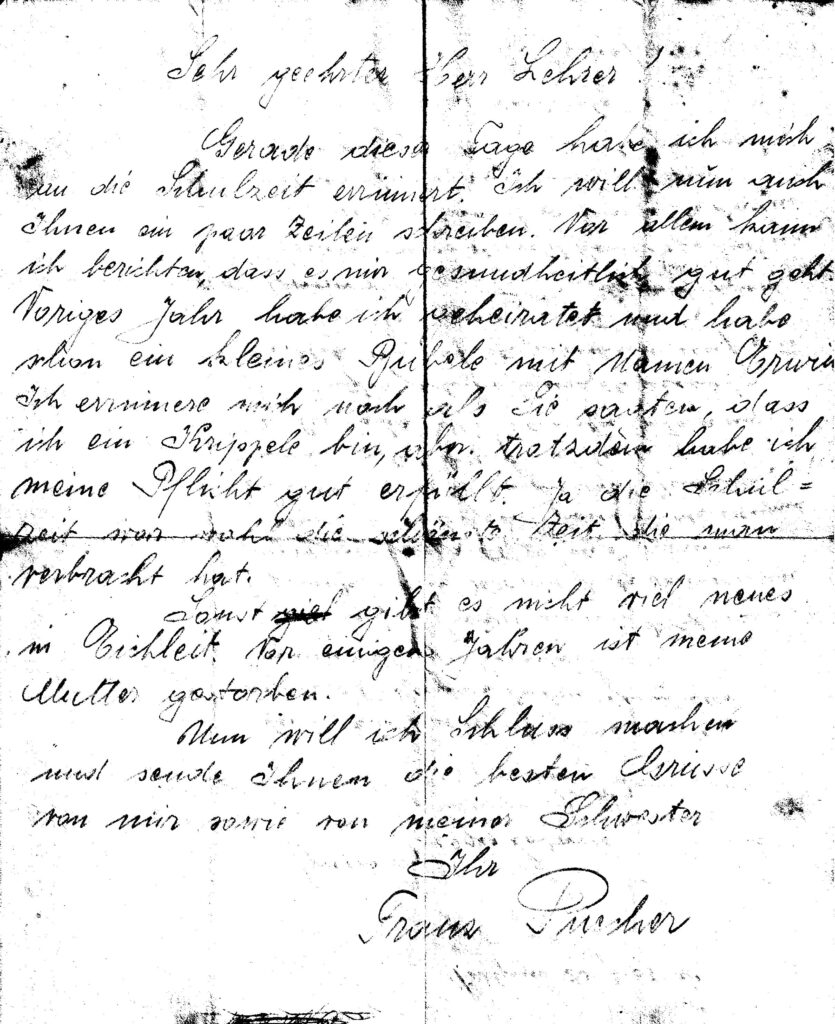 Sehr geehrter Herr Lehrer!
Gerade dieser Tage habe ich mich
an die Schulzeit errinnert. Ich will nun auch
Ihnen ein paar Zeilen schreiben. Vor allem kann
ich berichten, dass es mir gesundheitlich gut geht.
Voriges Jahr habe ich geheiratet und habe
schon ein kleines Bubele mit Namen Erwin
Ich errinnere mich noch als Sie sagten, dass
ich ein Krippele bin, aber trotzdem habe ich
meine Pflicht gut erfüllt. Ja die Schul=
zeit war wohl die schönste Zeit die man
verbracht hat.
Sonst giebt gibt es nicht viel neues
in Eichleit. Vor einigen Jahren ist meine
Mutter gestorben.
Nun will ich Schluss machen
und sende Ihnen die besten Grüsse
von mir sowie von meiner Schwester
Ihr
Franz Pucher